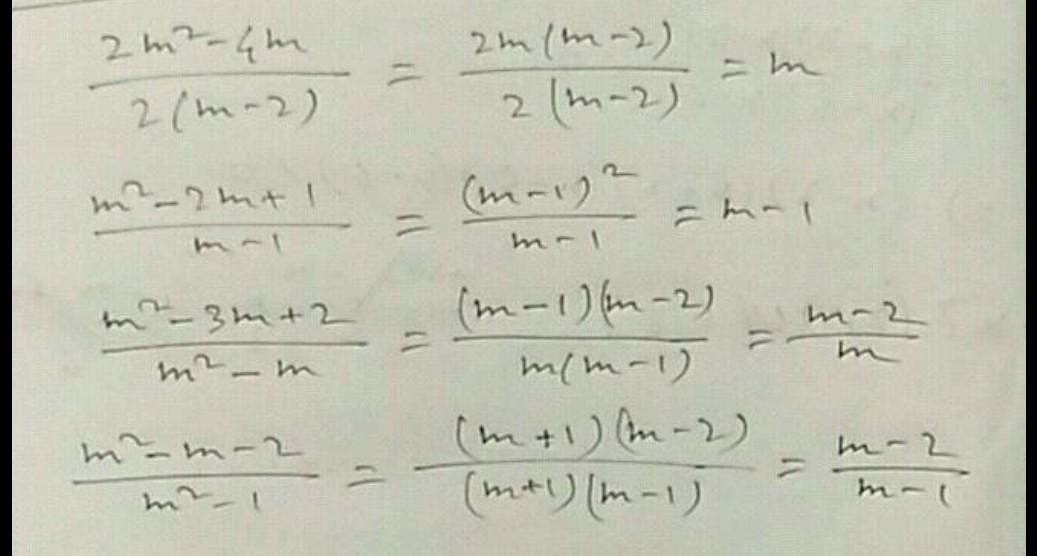 (2m²-4m)/(2(m-2)) = (2m(m-2))/(2(m-2)) = m
(m²-2m+1)/(m-1) = (m-1)²/(m-1) = m-1
(m²-3m+2)/(m²-m) = ((m-1)(m-2))/(m(m-1)) = (m-2)/m
(m²-m-2)/(m²-1) = ((m+1)(m-2))/((m+1)(m-1)) = (m-2)/(m-1)